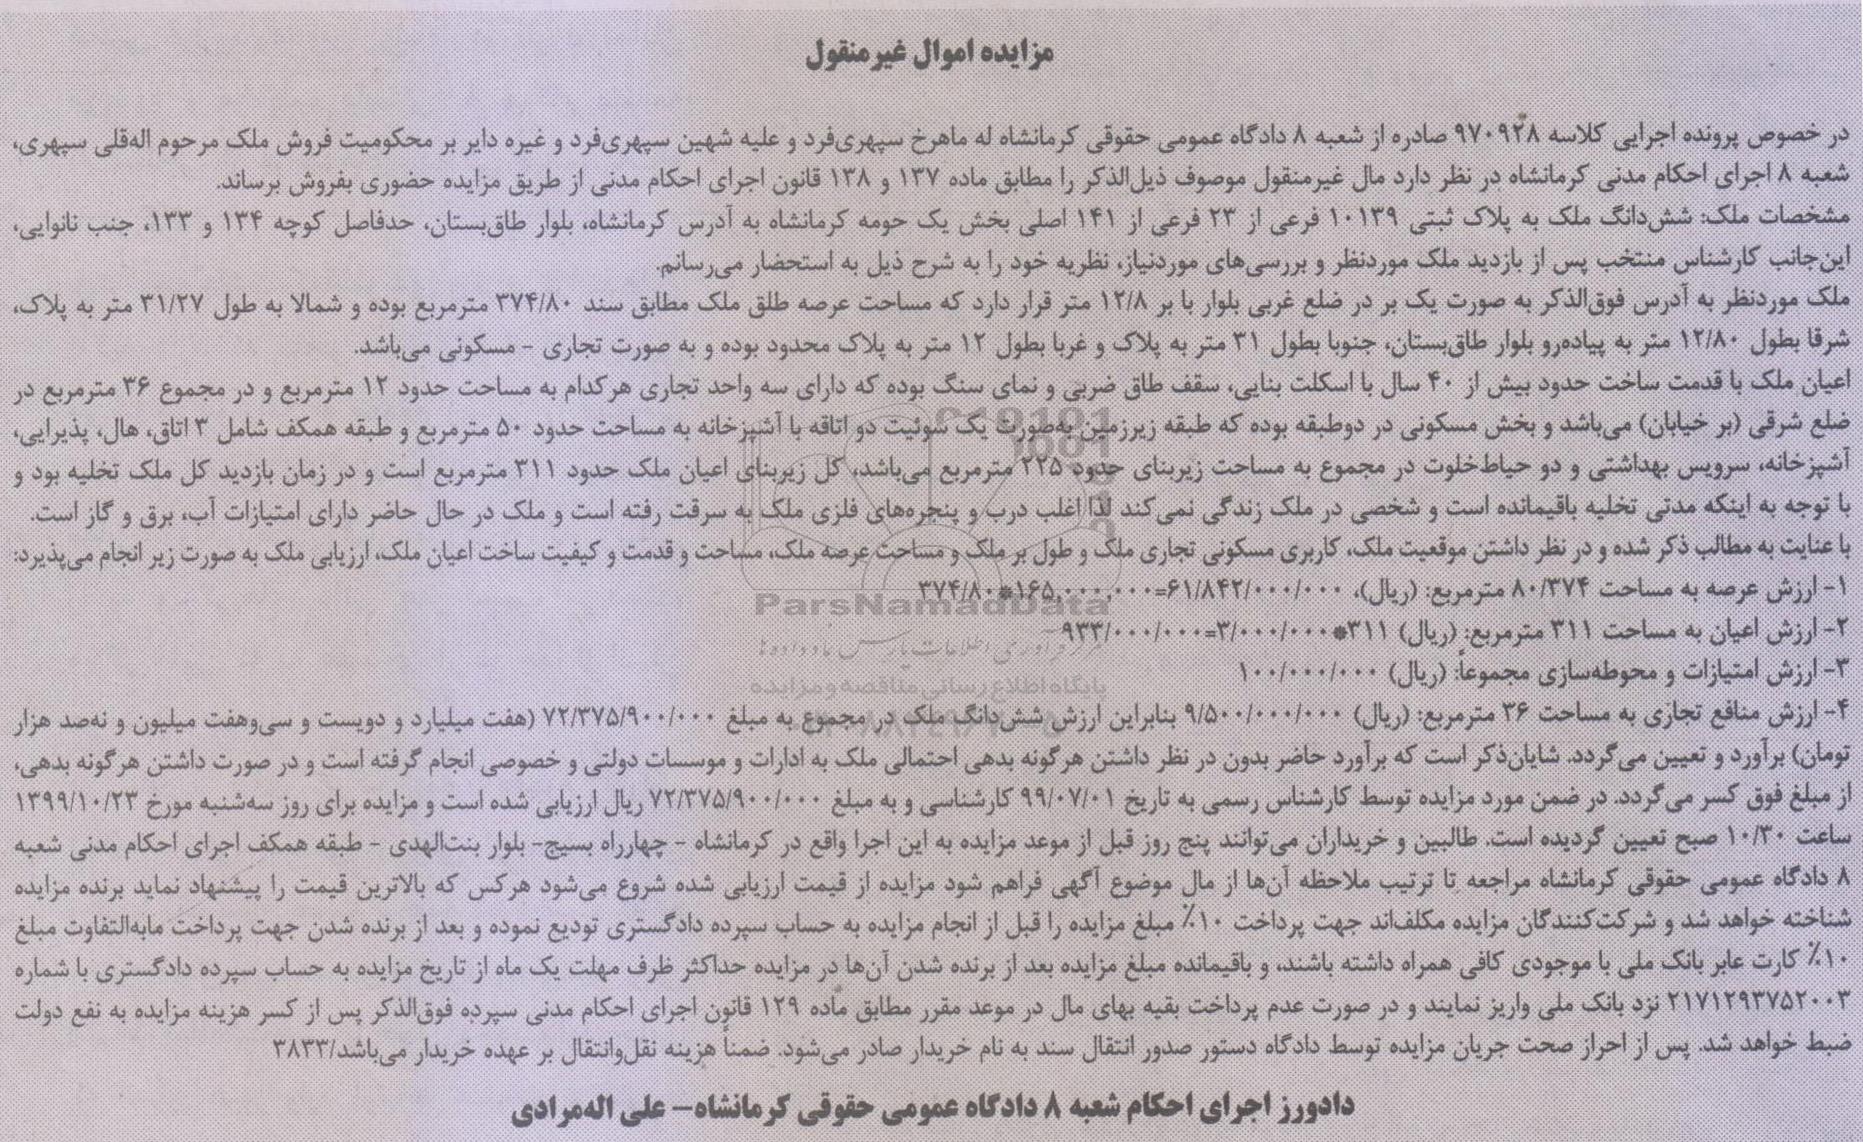 مزایده اموال غیرمنقول
در خصوص پرونده اجرایی کلاسه ۹۷۰۹۲۸ صادره از شعبه ۸ دادگاه عمومی حقوقی کرمانشاه له ماهرخ سپهری‌فرد و علیه شهین سپهری‌فرد و غیره دایر بر محکومیت فروش ملک مرحوم اله‌قلی سپهری،
شعبه ۸ اجرای احکام مدنی کرمانشاه در نظر دارد مال غیرمنقول موصوف ذیل‌الذکر را مطابق ماده ۱۳۷ و ۱۳۸ قانون اجرای احکام مدنی از طریق مزایده حضوری بفروش برساند.
مشخصات ملک: شش‌دانگ ملک به پلاک ثبتی ۱۰۱۳۹ فرعی از ۲۳ فرعی از ۱۴۱ اصلی بخش یک حومه کرمانشاه به آدرس کرمانشاه، بلوار طاق‌بستان، حدفاصل کوچه ۱۳۴ و ۱۳۳، جنب نانوایی،
این‌جانب کارشناس منتخب پس از بازدید ملک موردنظر و بررسی‌های موردنیاز، نظریه خود را به شرح ذیل به استحضار می‌رسانم.
ملک موردنظر به آدرس فوق‌الذکر به صورت یک بر در ضلع غربی بلوار با بر ۱۲/۸ متر قرار دارد که مساحت عرصه طلق ملک مطابق سند ۳۷۴/۸۰ مترمربع بوده و شمالا به طول ۳۱/۲۷ متر به پلاک،
شرقا بطول ۱۲/۸۰ متر به پیاده‌رو بلوار طاق‌بستان، جنوبا بطول ۳۱ متر به پلاک و غربا بطول ۱۲ متر به پلاک محدود بوده و به صورت تجاری - مسکونی می‌باشد.
اعیان ملک با قدمت ساخت حدود بیش از ۴۰ سال با اسکلت بنایی، سقف طاق ضربی و نمای سنگ بوده که دارای سه واحد تجاری هرکدام به مساحت حدود ۱۲ مترمربع و در مجموع ۳۶ مترمربع در
ضلع شرقی (بر خیابان) می‌باشد و بخش مسکونی در دوطبقه بوده که طبقه زیرزمین به‌صورت یک سوئیت دو اتاقه با آشپزخانه به مساحت حدود ۵۰ مترمربع و طبقه همکف شامل ۳ اتاق، هال، پذیرایی،
آشپزخانه، سرویس بهداشتی و دو حیاط‌خلوت در مجموع به مساحت زیربنای حدود ۲۲۵ مترمربع می‌باشد، کل زیربنای اعیان ملک حدود ۳۱۱ مترمربع است و در زمان بازدید کل ملک تخلیه بود و
با توجه به اینکه مدتی تخلیه باقیمانده است و شخصی در ملک زندگی نمی‌کند لذا اغلب درب و پنجره‌های فلزی ملک به سرقت رفته است و ملک در حال حاضر دارای امتیازات آب، برق و گاز است.
با عنایت به مطالب ذکر شده و در نظر داشتن موقعیت ملک، کاربری مسکونی تجاری ملک و طول بر ملک و مساحت عرصه ملک، مساحت و قدمت و کیفیت ساخت اعیان ملک، ارزیابی ملک به صورت زیر انجام می‌پذیرد:
۱- ارزش عرصه به مساحت ۸۰/۳۷۴ مترمربع: (ریال)، ۳۷۴/۸۰*۱۶۵,۰۰۰,۰۰۰=۶۱/۸۴۲/۰۰۰/۰۰۰
۲- ارزش اعیان به مساحت ۳۱۱ مترمربع: (ریال) ۳۱۱*۳/۰۰۰/۰۰۰=۹۳۳/۰۰۰/۰۰۰
۳- ارزش امتیازات و محوطه‌سازی مجموعاً: (ریال) ۱۰۰/۰۰۰/۰۰۰
۴- ارزش منافع تجاری به مساحت ۳۶ مترمربع: (ریال) ۹/۵۰۰/۰۰۰/۰۰۰ بنابراین ارزش شش‌دانگ ملک در مجموع به مبلغ ۷۲/۳۷۵/۹۰۰/۰۰۰ (هفت میلیارد و دویست و سی‌وهفت میلیون و نه‌صد هزار
تومان) برآورد و تعیین می‌گردد. شایان‌ذکر است که برآورد حاضر بدون در نظر داشتن هرگونه بدهی احتمالی ملک به ادارات و موسسات دولتی و خصوصی انجام گرفته است و در صورت داشتن هرگونه بدهی،
از مبلغ فوق کسر می‌گردد. در ضمن مورد مزایده توسط کارشناس رسمی به تاریخ ۹۹/۰۷/۰۱ کارشناسی و به مبلغ ۷۲/۳۷۵/۹۰۰/۰۰۰ ریال ارزیابی شده است و مزایده برای روز سه‌شنبه مورخ ۱۳۹۹/۱۰/۲۳
ساعت ۱۰/۳۰ صبح تعیین گردیده است. طالبین و خریداران می‌توانند پنج روز قبل از موعد مزایده به این اجرا واقع در کرمانشاه - چهارراه بسیج- بلوار بنت‌الهدی - طبقه همکف اجرای احکام مدنی شعبه
۸ دادگاه عمومی حقوقی کرمانشاه مراجعه تا ترتیب ملاحظه آن‌ها از مال موضوع آگهی فراهم شود مزایده از قیمت ارزیابی شده شروع می‌شود هرکس که بالاترین قیمت را پیشنهاد نماید برنده مزایده
شناخته خواهد شد و شرکت‌کنندگان مزایده مکلف‌اند جهت پرداخت ۱۰٪ مبلغ مزایده را قبل از انجام مزایده به حساب سپرده دادگستری تودیع نموده و بعد از برنده شدن جهت پرداخت مابه‌التفاوت مبلغ
۱۰٪ کارت عابر بانک ملی با موجودی کافی همراه داشته باشند، و باقیمانده مبلغ مزایده بعد از برنده شدن آن‌ها در مزایده حداکثر ظرف مهلت یک ماه از تاریخ مزایده به حساب سپرده دادگستری با شماره
۲۱۷۱۲۹۳۷۵۲۰۰۳ نزد بانک ملی واریز نمایند و در صورت عدم پرداخت بقیه بهای مال در موعد مقرر مطابق ماده ۱۲۹ قانون اجرای احکام مدنی سپرده فوق‌الذکر پس از کسر هزینه مزایده به نفع دولت
ضبط خواهد شد. پس از احراز صحت جریان مزایده توسط دادگاه دستور صدور انتقال سند به نام خریدار صادر می‌شود. ضمناً هزینه نقل‌وانتقال بر عهده خریدار می‌باشد/۳۸۳۳
دادورز اجرای احکام شعبه ۸ دادگاه عمومی حقوقی کرمانشاه- علی اله‌مرادی
ParsNamadData
پایگاه اطلاع رسانی مناقصه و مزایده